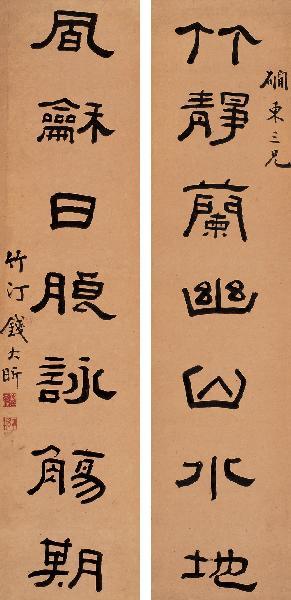 竹靜蘭幽山水地
磵東三兄
風龢日朖詠觴期
竹汀錢大昕